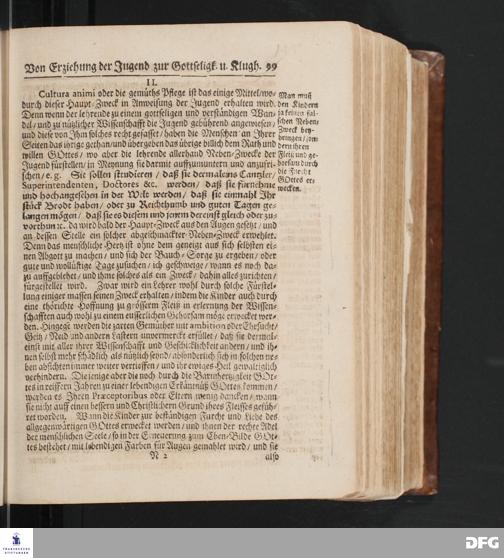 Von Erziehung der Jugend zur Gottseligk. u. Klugh. 99
II.
Cultura animi oder die gemüths Pflege ist das einige Mittel/wo-
durch dieser Haupt-Zweck in Anweisung der Jugend erhalten wird.
Denn wenn der lehrende zu einem gottseligen und verständigen Wan-
del/ und zu nützlicher Wissenschafft die Jugend gebührend angewiesen/
und diese von Ihm solches recht gefasset/ haben die Menschen an Ihrer
Seiten das ihrige gethan/und übergeben das übrige billich dem Rath und
willen GOttes/ wo aber die lehrende allerhand Neben-Zwecke der
Jugend fürstellen/ in Meynung sie darmit auffzumuntern und anzufri-
schen/ e. g. Sie sollen studieren/ daß sie dermaleins Cantzler/
Superintendenten, Doctores &c. werden/ daß sie fürnehme
und hochangesehen in der Welt werden/ daß sie einmahl Ihr
stück Brodt haben/ oder zu Reichthumb und guten Tagen ge-
langen mögen/ daß sie es diesem und jenem dereinst gleich oder zu-
vorthun ꝛc. da wird bald der Haupt-Zweck aus den Augen gesetzt/ und
an dessen Stelle ein solcher abgeschmackter Neben-Zweck erwehlet.
Denn das menschliche Hertz ist ohne dem geneigt aus sich selbsten ei-
nen Abgott zu machen/ und sich der Bauch-Sorge zu ergeben/ oder
gute und wollüstige Tage zusuchen/ ich geschweige/ wann es noch da-
zu auffgeblehet/ und ihme solches als ein Zweck/ dahin alles zurichten/
fürgestellet wird. Zwar wird ein Lehrer wohl durch solche Fürstel-
lung einiger massen seinen Zweck erhalten/ indem die Kinder auch durch
eine thörichte Hoffnung zu grösserm Fleis in erlernung der Wissen-
schafften auch wohl zu einem eusserlichen Gehorsam möge erwecket wer-
den. Hingegẽ werden die zarten Gemüther mit ambition oder Ehrsucht/
Geitz/ Neid und andern Lastern unvermerckt erfüllet/ daß sie dermal-
einst mit aller ihrer Wissenschafft und Geschicklichkeit andern/ und ih-
nen selbst mehr schädlich als nützlich seynd/ absonderlich sich in solchen ne-
ben absichten immer weiter vertieffen/ und ihr ewiges Heil gewaltiglich
verhindern. Diejenige aber die noch durch die Barmhertzigkeit GOt-
tes in reiffern Jahren zu einer lebendigen Erkäntnüß GOttes kommen/
werden es Ihren Præceptoribus oder Eltern wenig dancken/ wann
sie nicht auff einen bessern und Christlichern Grund ihres Fleisses gefüh-
ret worden. Wann die Kinder zur beständigen Furcht und Liebe des
allgegenwärtigen GOttes erwecket werden/ und ihnen der rechte Adel
der menschlichen Seele/ so in der Erneuerung zum Eben-Bilde GOt-
tes bestehet/ mit lebendigen Farben für Augen gemahlet wird/ und sie
N 2 also
Man muß
den Kindern
zu keinen fal-
schen Neben-
Zweck bey-
bringen/ son-
dern ihren
Fleiß und ge-
horsam durch
die Furcht
GOttes er-
wecken.
FRANCKESCHE
STIFTUNGEN
DFG